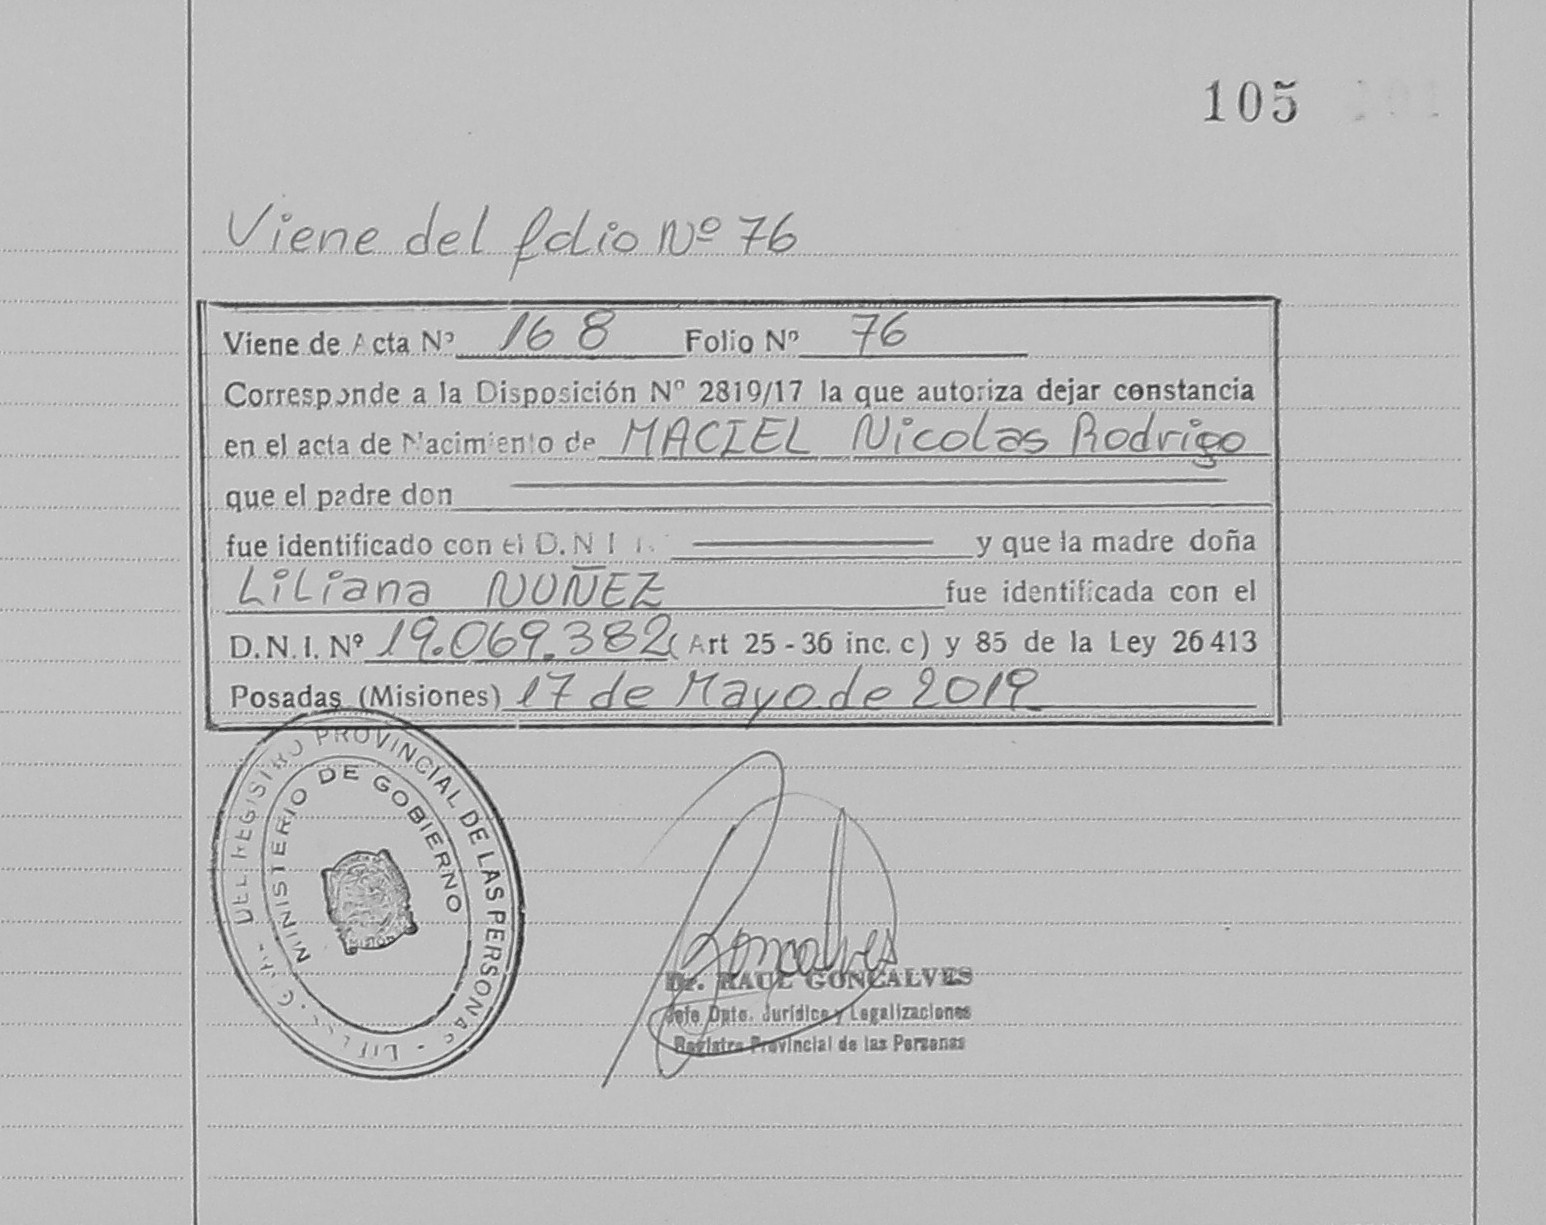 105
Viene del folio Nº 76
Viene de Acta Nº 168 Folio Nº 76
Corresponde a la Disposición Nº 2819/17 la que autoriza dejar constancia
en el acta de Nacimiento de MACIEL Nicolas Rodrigo
que el padre don
fue identificado con el D.N.I.
y que la madre doña
Liliana NUÑEZ fue identificada con el
D.N.I. Nº 19.069.382 (Art 25 - 36 inc. c) y 85 de la Ley 26413
Posadas (Misiones) 17 de Mayo de 2019
DEL REGISTRO PROVINCIAL DE LAS PERSONAS
MINISTERIO DE GOBIERNO
Goncalves
Dr. RAUL GONCALVES
Jefe Dpto. Jurídico y Legalizaciones
Registro Provincial de las Personas